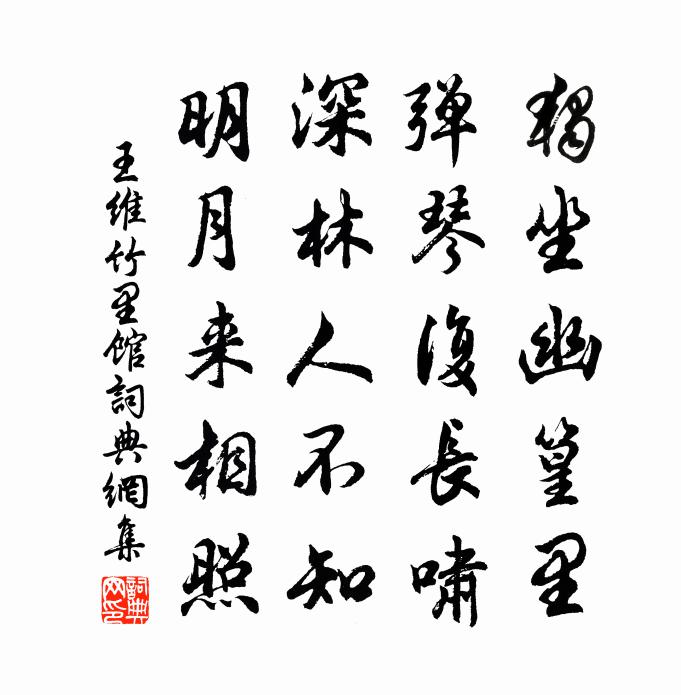 獨坐幽篁里
彈琴復長嘯
深林人不知
明月来相照
王維竹里館詞典網集
詞典网印